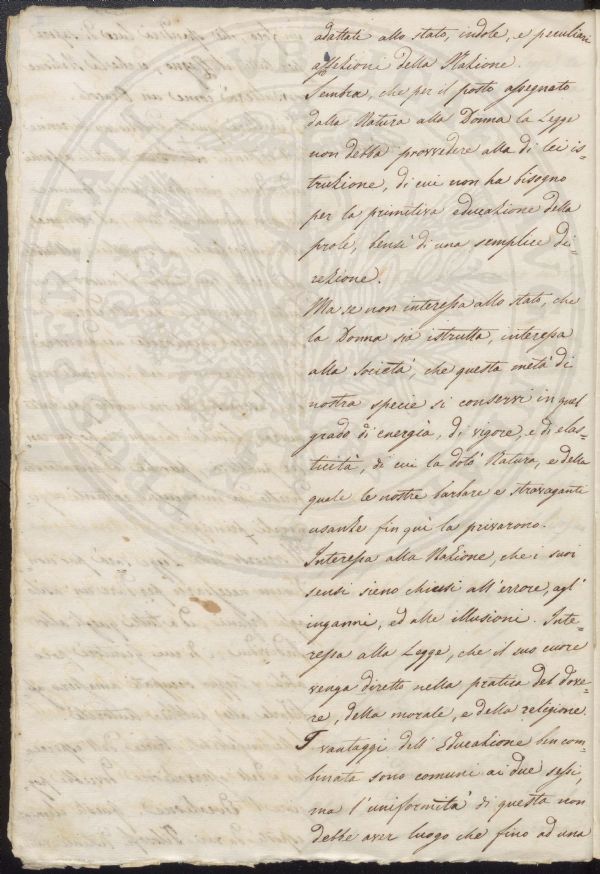 adattate allo stato, indole, e peculiari
affezioni della Nazione.
Sembra, che per il posto assegnato
dalla Natura alla Donna la Legge
non debba provvedere alla di lei is=
truzione, di cui non ha bisogno
per la primitiva educazione della
prole, bensì di una semplice di=
rezione.
Ma se non interessa allo stato, che
la Donna sia istrutta, interessa
alla Società, che questa metà di
nostra specie si conservi in quel
grado di energia, di vigore, e di elas=
ticità, di cui la dotò Natura, e della
quale le nostre barbare e stravaganti
usanze fin quì la privarono.
Interessa alla Nazione, che i suoi
sensi sieno chiusi all'errore, agl'
inganni, ed alle illusioni. Inte=
ressa alla Legge, che il suo cuore
venga diretto nella pratica del dove=
re, della morale, e della religione.
I vantaggi dell'Educazione ben com=
binata sono comuni ai due sessi,
ma l'uniformità di questa non
debbe aver luogo che fino ad una